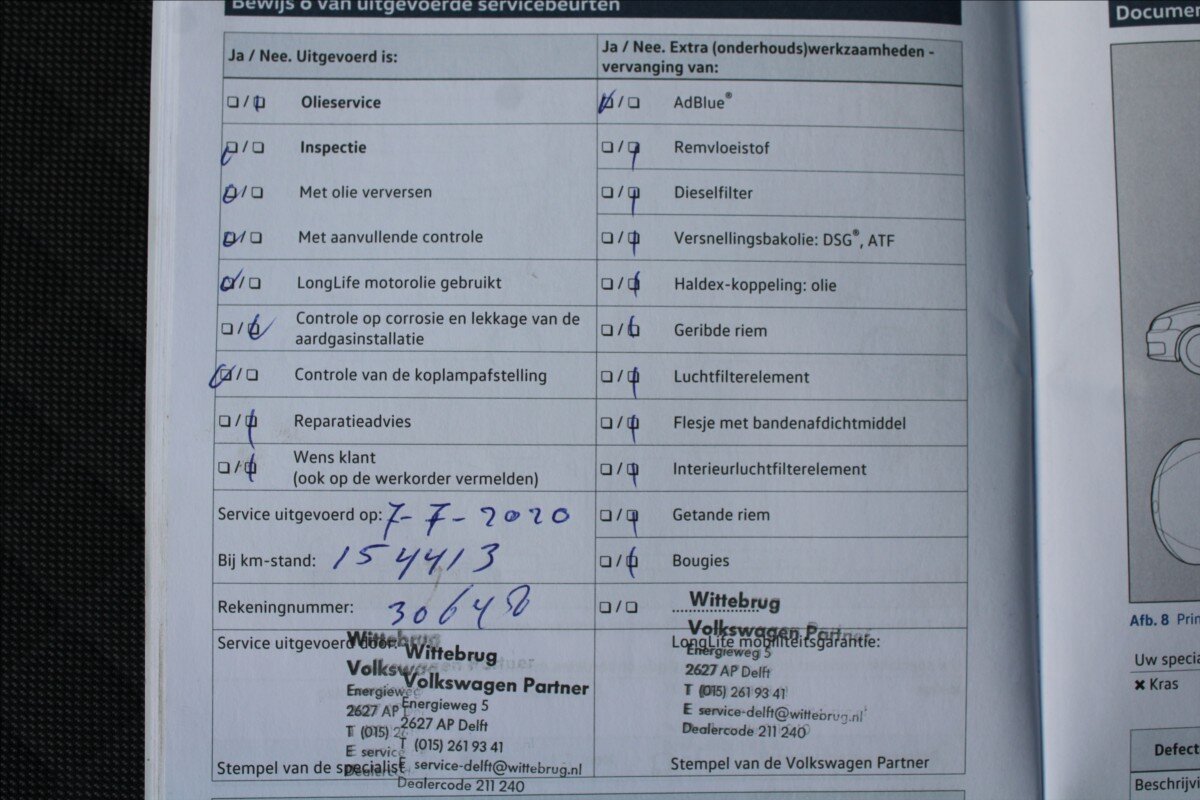 Bewijs 6 van uitgevoerde servicebeurten
Ja / Nee. Uitgevoerd is:
Olieservice
Inspectie
Met olie verversen
Met aanvullende controle
LongLife motorolie gebruikt
Controle op corrosie en lekkage van de
aardgasinstallatie
Controle van de koplampafstelling
Reparatieadvies
Wens klant
(ook op de werkorder vermelden)
Service uitgevoerd op: 7-7-2020
Bij km-stand: 154413
Rekeningnummer: 30648
Service uitgevoerd door:
Wittebrug
Volkswagen Partner
Energieweg 5
2627 AP Delft
T (015) 261 93 41
E service-delft@wittebrug.nl
Dealercode 211 240
Stempel van de specialist
Ja / Nee. Extra (onderhouds)werkzaamheden -
vervanging van:
AdBlue®
Remvloeistof
Dieselfilter
Versnellingsbakolie: DSG®, ATF
Haldex-koppeling: olie
Geribde riem
Luchtfilterelement
Flesje met bandenafdichtmiddel
Interieurluchtfilterelement
Getande riem
Bougies
Wittebrug
Volkswagen Partner
LongLife mobiliteitsgarantie:
Energieweg 5
2627 AP Delft
T (015) 261 93 41
E service-delft@wittebrug.nl
Dealercode 211 240
Stempel van de Volkswagen Partner
Afb. 8
Uw
✖ Kras